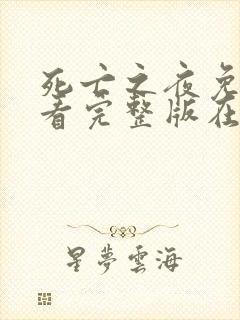 死亡之夜免
看完整版在
星夢雲海